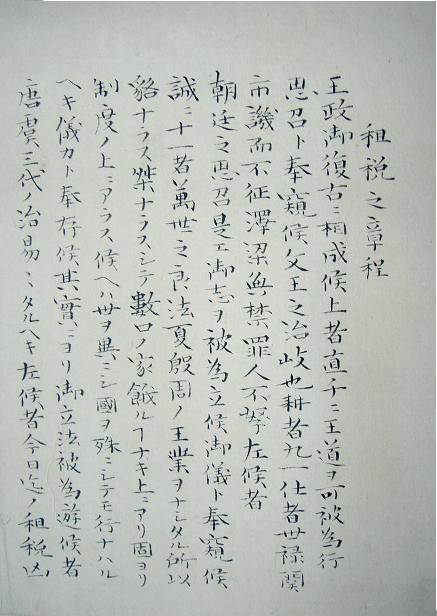 租税之章程
王政御復古ニ相成候上者直チニ王道ヲ可被為行
思召ト奉窺候文王之治岐也耕者九一仕者世禄関
市譏而不征澤梁無禁罪人不孥左候者
朝廷之思召是エ御志ヲ被為立候御儀ト奉窺候
誠ニ十一者萬世之良法夏殷周ノ王業ヲナシタル所以
貉ナラス桀ナラスシテ數口ノ家餓ルヿナキ上ニアリ固ヨリ
制度ノ上ニアラス候ヘハ世ヲ異ニシ國ヲ殊ニシテモ行ナハル
ヘキ儀カト奉存候其實ニヨリ御立法被為游候者
唐虞三代ノ治易々タルヘキ左候者今日迄ノ租税凶